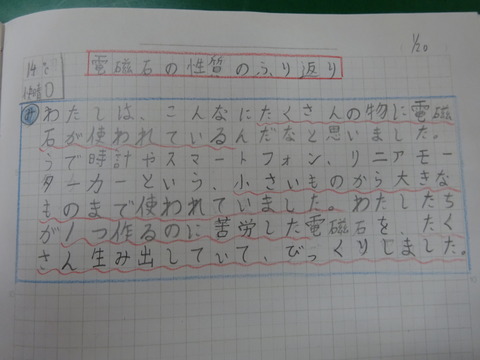 1/20
電磁石の性質のふり返り
わたしは、こんなにたくさんの物に電磁
石が使われているんだなと思いました。
うで時計やスマートフォン、リニアモー
ターカーという、小さいものから大きな
ものまで使われていました。わたしたち
が1つ作るのに苦労した電磁石を、たく
さん生み出していて、びっくりしました。